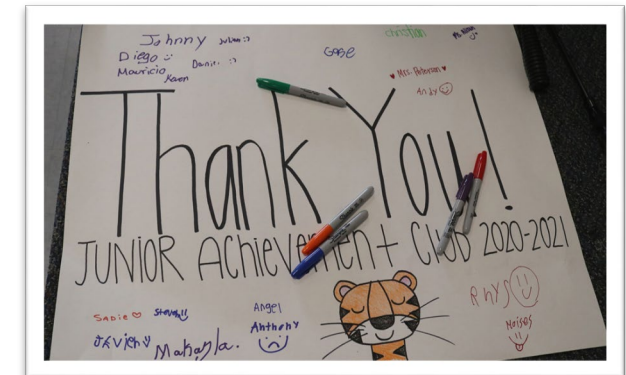 Johnny
Diego
Mauricio
Karen
Gabe
christian
Mrs. Peterson
Andy
Thank You!
JUNIOR AChievement Club 2020-2021
SADIE
Steven
Makayla.
Angel
Anthony
RhYS
Moises